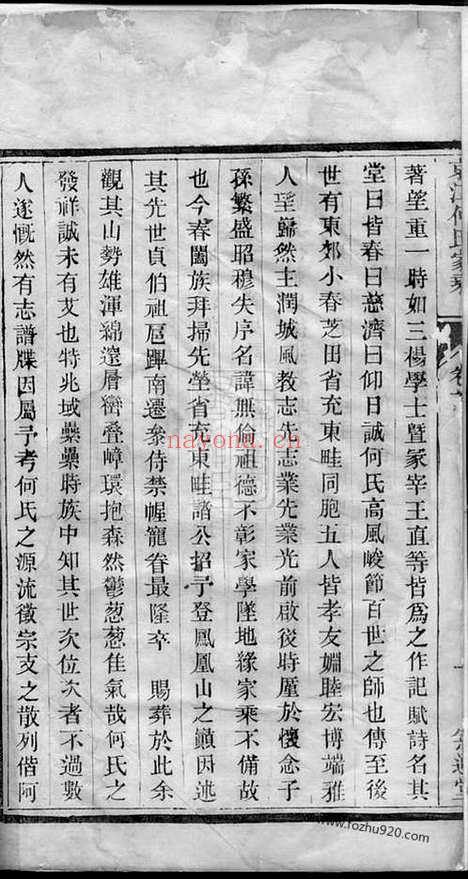 著望重一時如三楊學士曁冢宰王直等皆爲之作記賦詩名其
堂曰皆春曰慈濟曰仰曰誠何氏高風峻節百世之師也傳至後
世有東郊小春芝田省充東畦同胞五人皆孝友婣睦宏博端雅
人望歸然主潤城風教志先志業先業光前啟後時厪於懷念子
孫繁盛昭穆失序名諱無倫祖德不彰家學墜地緣家乘不備故
也今春闔族拜掃先塋省充東畦諸公招予登鳳凰山之巔因述
其先世貞伯祖扈蹕南遷叅侍禁幄寵眷最隆卒 賜葬於此余
觀其山勢雄渾綿遠層巒叠嶂環抱森然鬱葱葱佳氣哉何氏之
發祥誠未有艾也特兆域纍纍時族中知其世次位次者不過數
人遂慨然有志譜牒因屬予考何氏之源流徵宗支之散列偕阿
何氏家乘
nayona.cn
www.fozhu920.com